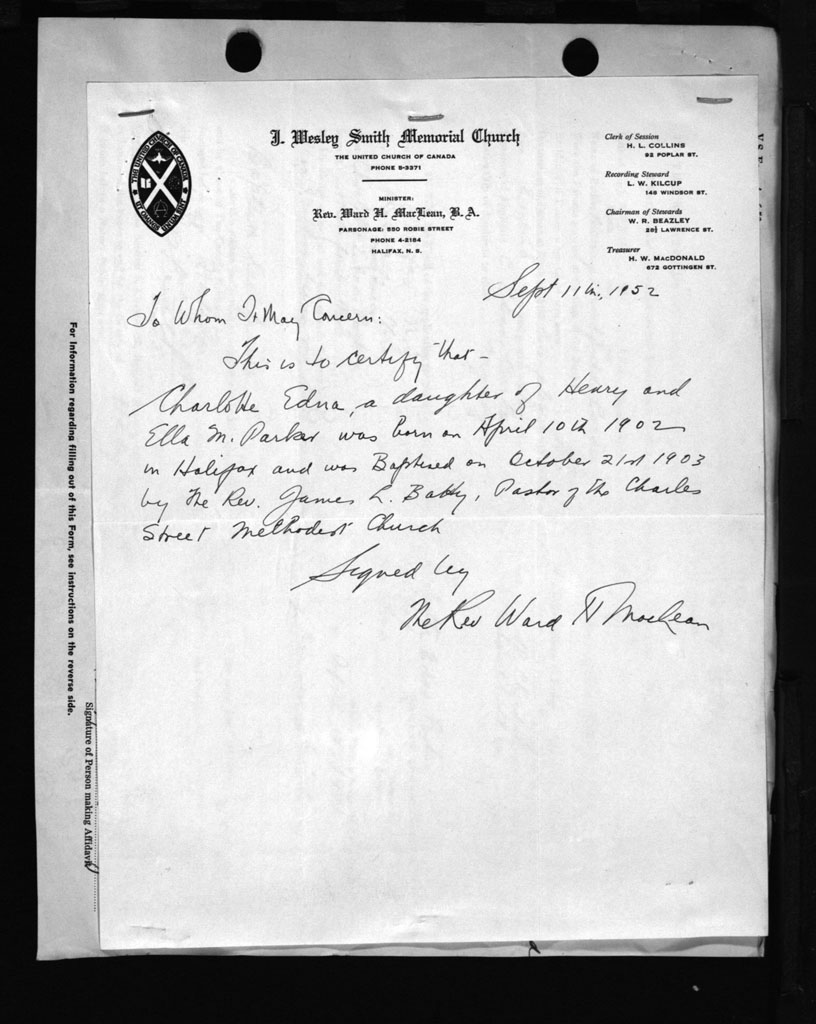 J. Wesley Smith Memorial Church
THE UNITED CHURCH OF CANADA
PHONE 5-3371
MINISTER:
Rev. Ward H. MacLean, B.A.
PARSONAGE: 550 ROBIE STREET
PHONE 4-2184
HALIFAX, N. S.
Clerk of Session
H. L. COLLINS
92 POPLAR ST.
Recording Steward
L. W. KILCUP
148 WINDSOR ST.
Chairman of Stewards
W. R. BEAZLEY
28½ LAWRENCE ST.
Treasurer
H. W. MACDONALD
672 GOTTINGEN ST.
Sept 11th, 1952
To Whom It May Concern:
This is to certify that -
Charlotte Edna, a daughter of Henry and
Ella M. Parker was born on April 10th 1902
in Halifax and was Baptised on October 21st 1903
by The Rev. James L. Batty, Pastor of the Charles
Street Methodist Church
Signed by
The Rev Ward H MacLean
For Information regarding filling out of this Form, see instructions on the reverse side.
Signature of Person making Affidavit